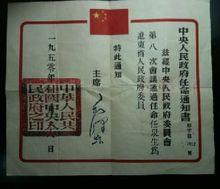 中央人民政府任命通知書
茲經中央人民政府委員會
第八次會議通過任命任泉生為
遼東省人民政府委員
特此通知
主席
毛澤東
一九五〇年
日
中華人民共
和國中央人
民政府之印